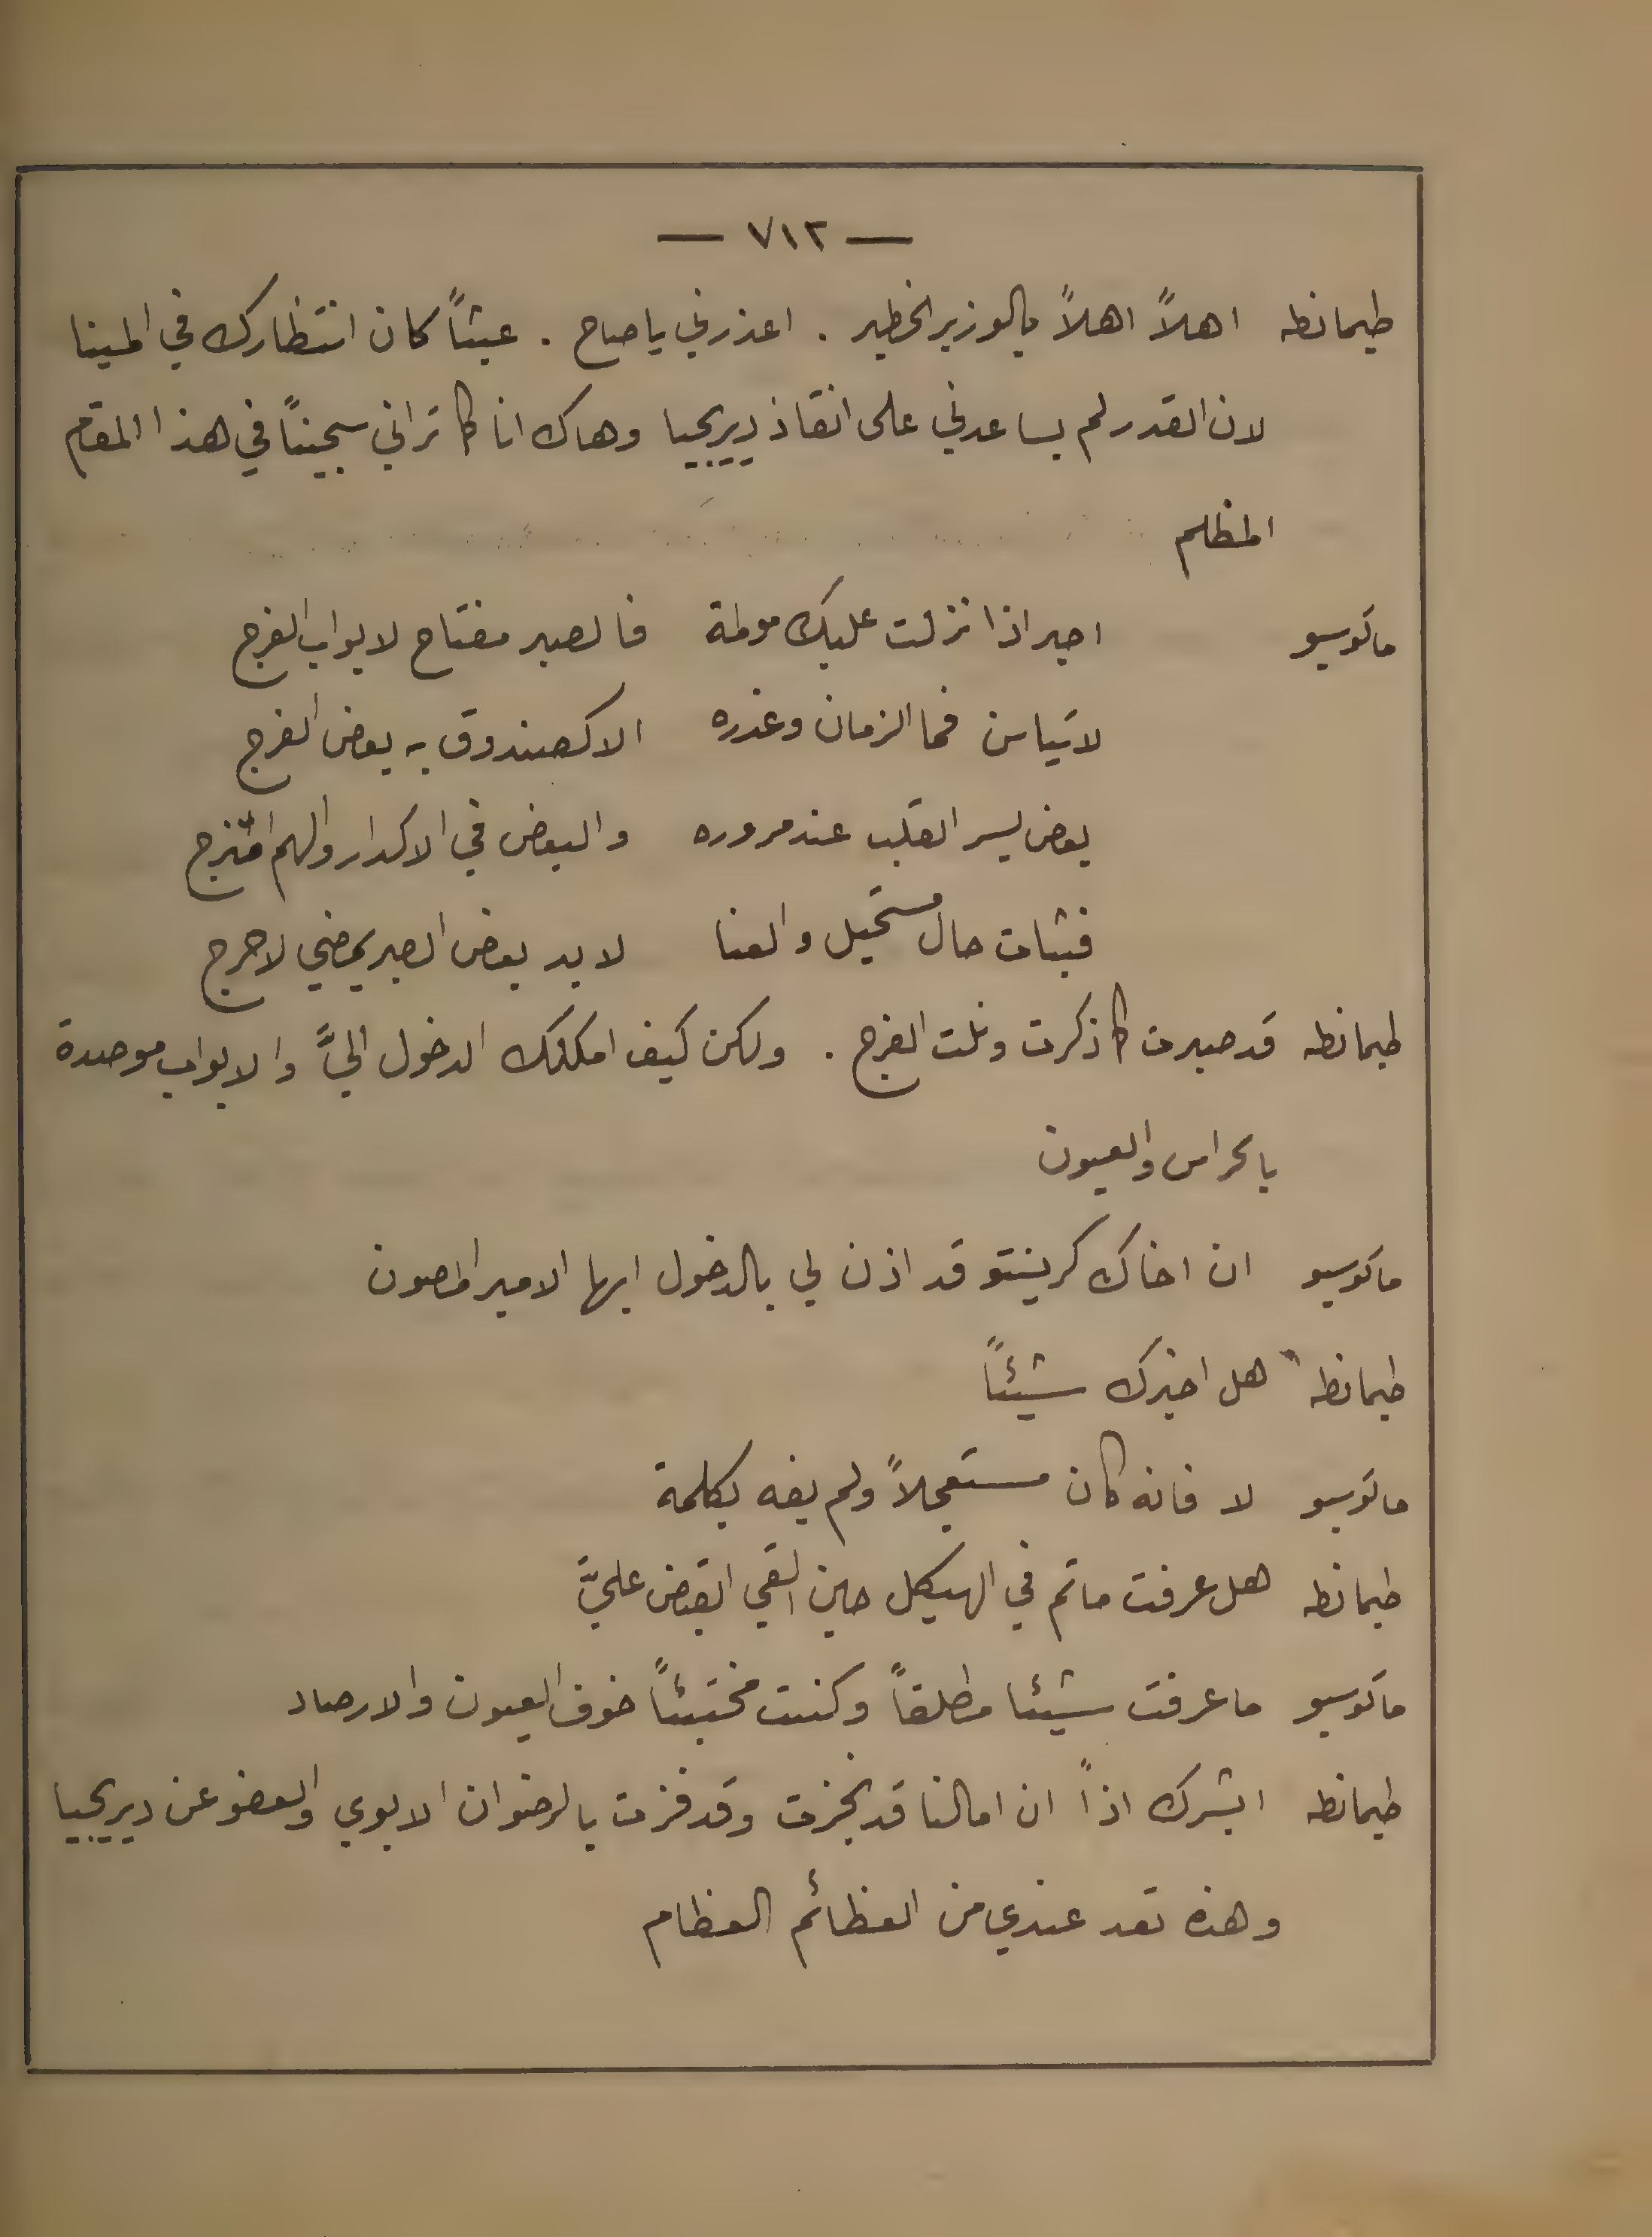 — ٧١٢ —
طيمانطه اهلاً اهلاً بالوزير الخطير . اعذرني يا صاح . عبثاً كان انتظارك في المينا
لان القدر لم يساعدني على انقاذ ديريجيا وهاك انا كما تراني سجيناً في هذا المقام
المظلم
ماتوسيو اصبر اذا نزلت عليك مولمة فالصبر مفتاح لابواب الفرج
لا تيأسن فما الزمان وغدره الا كصندوق به بعض الفرج
بعض يسر القلب عند مروره والبعض في الاكدار والهم امتزج
فثبات حال مستحيل والعنا لا بد بعض الصبر يمضي لا حرج
طيمانطه قد صبرت كما ذكرت ونلت الفرج . ولكن كيف امكنك الدخول اليَّ والابواب موصدة
بالحراس والعيون
ماتوسيو ان اخاك كرينتو قد اذن لي بالدخول ايها الامير المصون
طيمانطه هل اخبرك شيئاً
ماتوسيو لا فانه كان مستعجلاً ولم يفه بكلمة
طيمانطه هل عرفت ما تم في الهيكل حين القي القبض عليَّ
ماتوسيو ما عرفت شيئا مطلقاً وكنت مختبئاً خوف العيون والارصاد
طيمانطه ابشرك اذاً ان امالنا قد نجزت وقد فزت بالرضوان الابوي والعفو عن ديريجيا
وهذه تعد عندي من العظائم العظام